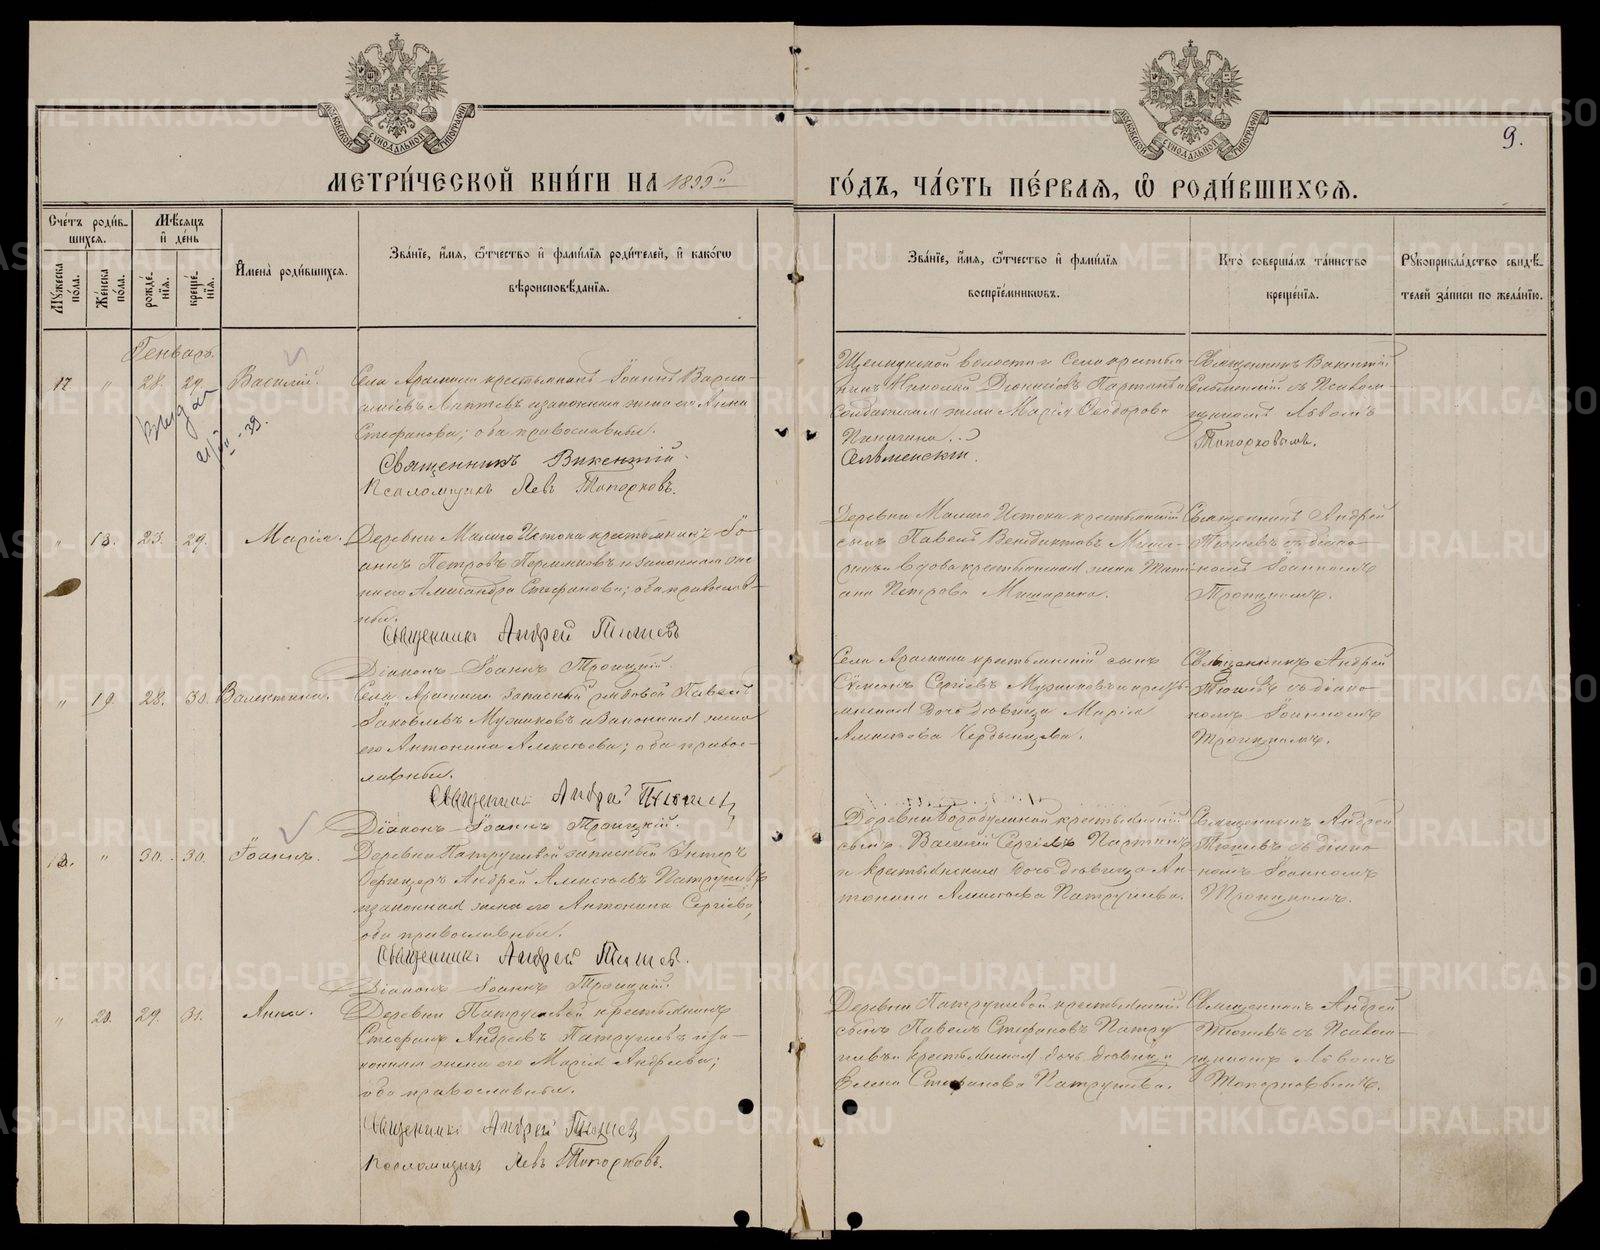 МЕТРИ́ЧЕСКОЙ КНИ́ГИ НА 1899й
ГО́ДЪ, ЧА́СТЬ ПЕ́РВАЯ, Ѿ РОДИ́ВШИХСЯ.
9.
МОСКОВСКОЙ СУНОДАЛЬНОЙ ТИПОГРАФІИ
МОСКОВСКОЙ СУНОДАЛЬНОЙ ТИПОГРАФІИ
Сче́тъ роди́в-
шихся.
Мѣсяцъ
и҆ де́нь
Му́жеска по́ла.
Же́нска по́ла.
рожде́нїя.
креще́нїя.
И҆мена̀ роди́вшихся.
Зва́нїе, и҆́мя, ѻ҆́тчество и҆ фами́лїя роди́телей, и҆ како́гѡ
вѣроисповѣ́данїя.
Зва́нїе, и҆́мя, ѻ҆́тчество и҆ фами́лїя
воспрїе́мникѡвъ.
Кто̀ соверша́лъ та́инство
креще́нїя.
Рꙋкоприкла́дство свидѣ́-
телей за́писи по жела́нїю.
Генварь.
17 " 28. 29. Василій.
Села Арамили крестьянинъ Іоаннъ Варла-
аміевъ Лаптевъ и законная жена его Анна
Стефанова; оба православные.
Священникъ Викентій
Псаломщикъ Левъ Топорковъ.
волости Села крестья-
нинъ Діонисіевъ
Солдатская жена Марія Ѳеодорова
Сельменскій.
Священникъ Викентій
Сельменскій съ Псалом-
щикомъ Львомъ
Топорковымъ.
" 18. 23. 29. Марія.
Деревни Малаго Истока крестьянинъ Іо-
аннъ Петровъ и законная же-
на его Александра Стефанова; оба православ-
ные.
Священникъ Андрей Тюшевъ
Діаконъ Іоаннъ Троицкій.
Деревни Малаго Истока крестьянскій
сынъ Павелъ Венедиктовъ Миша-
ринъ и вдова крестьянская жена Тати-
ана Петрова Мишарина.
Священникъ Андрей
Тюшевъ съ діако-
номъ Іоанномъ
Троицкимъ.
" 19. 28. 30. Валентина.
Села Арамили запасный рядовой Павелъ
Іаковлевъ Музниковъ и Законная жена
его Антонина Алексѣева; оба право-
славные.
Священникъ Андрей Тюшевъ
Діаконъ Іоаннъ Троицкій.
Села Арамили крестьянскій сынъ
Сѵмеонъ Сергіевъ и кресть-
янская дочь дѣвица Марія
Алексѣева
Священникъ Андрей
Тюшевъ съ діако-
номъ Іоанномъ
Троицкимъ.
18. " 30. 30. Іоаннъ.
Деревни Патрушевой запасный Унтеръ
Андрей Алексѣевъ Патрушевъ
и законная жена его Антонина Сергіева;
оба православные.
Священникъ Андрей Тюшевъ.
Діаконъ Іоаннъ Троицкій.
Деревни Бородулиной крестьянскій
сынъ Василій Сергіевъ
и Крестьянская дочь дѣвица Ан-
тонина Алексѣева Патрушева.
Священникъ Андрей
Тюшевъ съ діако-
номъ Іоанномъ
Троицкимъ.
" 20. 29. 31. Анна.
Деревни Патрушевой крестьянинъ
Стефанъ Андреевъ Патрушевъ и за-
конная жена его Марія Андреева;
оба православные.
Священникъ Андрей Тюшевъ
Псаломщикъ Левъ Топорковъ.
Деревни Патрушевой крестьянскій
сынъ Павелъ Стефановъ Патру-
шевъ и Крестьянская дочь дѣвица
Елена Стефанова Патрушева.
Священникъ Андрей
Тюшевъ съ Псалом-
щикомъ Львомъ
Топорковымъ.
METRIKI.GASO-URAL.RU